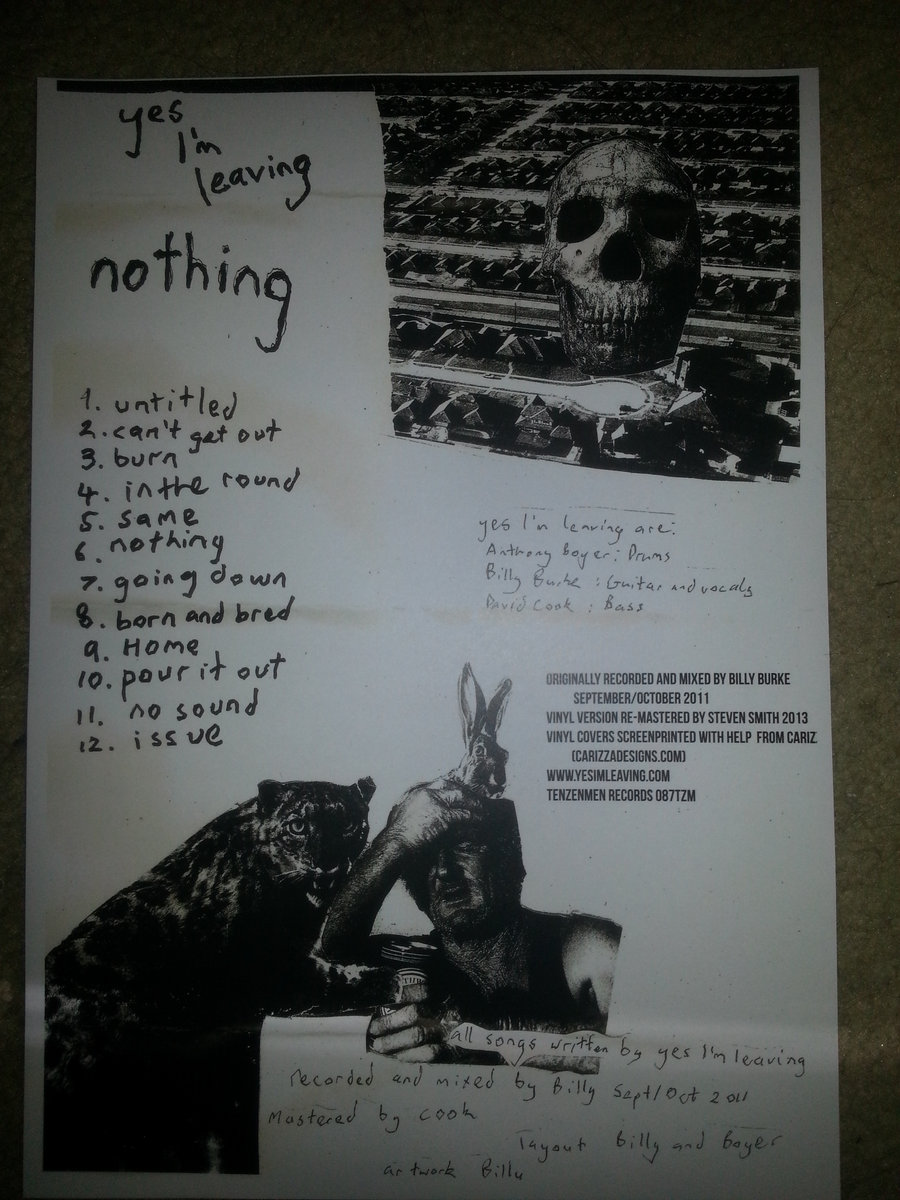 yes
I'm
leaving
nothing
1. untitled
2. can't get out
3. burn
4. in the round
5. same
6. nothing
7. going down
8. born and bred
9. Home
10. pour it out
11. no sound
12. issue
yes I'm leaving are:
Anthony Boyer: Drums
Billy Burke : Guitar and vocals
David Cook : Bass
ORIGINALLY RECORDED AND MIXED BY BILLY BURKE
SEPTEMBER/OCTOBER 2011
VINYL VERSION RE-MASTERED BY STEVEN SMITH 2013
VINYL COVERS SCREENPRINTED WITH HELP FROM CARIZ
(CARIZZADESIGNS.COM)
WWW.YESIMLEAVING.COM
TENZENMEN RECORDS 087TZM
all songs written by yes I'm leaving
recorded and mixed by Billy Sept/Oct 2011
Mastered by Cook
Layout Billy and Boyer
artwork Billy